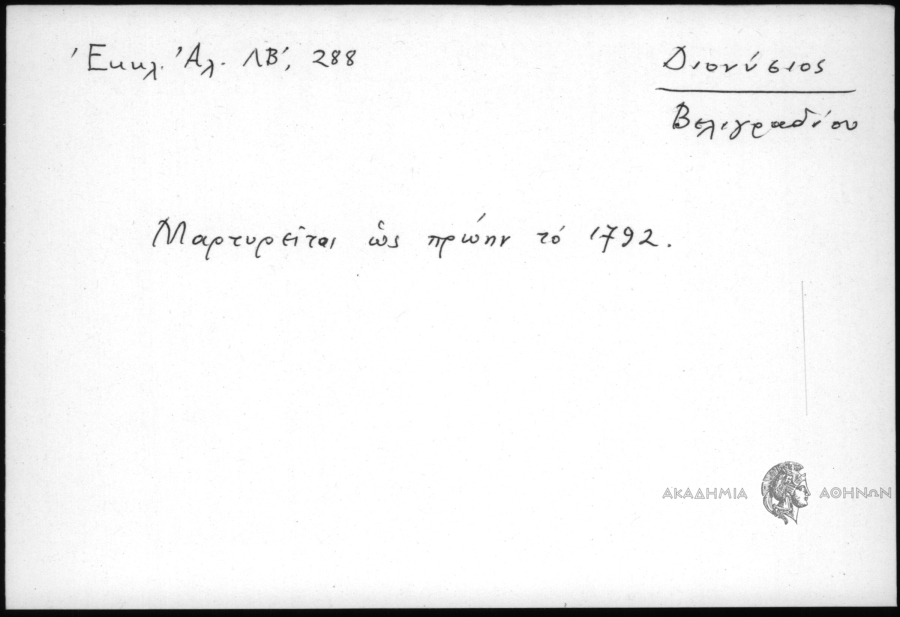 Ἐκκλ. Ἀλ. ΛΒ', 288
Διονύσιος
Βελιγραδίου
Μαρτυρεῖται ὡς πρώην τό 1792.
ΑΚΑΔΗΜΙΑ ΑΘΗΝΩΝ